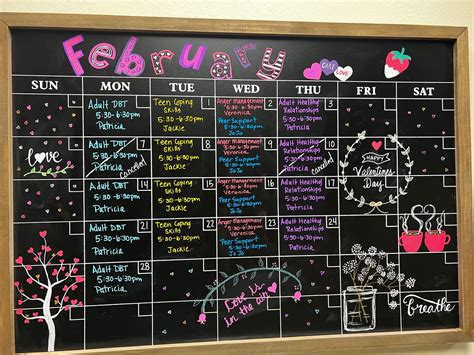 February
LOVE
SUN MON TUE WED THU FRI SAT
Adult DBT
5:30-6:30pm
Patricia
1
Teen Coping
Skills
5:30-6:30pm
Jackie
2
Anger Management
5:30-6:30pm
Veronica
Peer Support
5:30-6:30pm
JoJo
3
Adult Healthy
Relationships
5:30-6:30pm
Patricia
love
7
Adult DBT
5:30-6:30pm
Patricia
cancelled
8
Teen Coping
Skills
5:30-6:30pm
Jackie
9
Anger Management
5:30-6:30pm
Veronica
Peer Support
5:30-6:30pm
JoJo
10
Adult Healthy
Relationships
5:30-6:30pm
Patricia
cancelled
HAPPY
Valentine's
Day
14
Adult DBT
5:30-6:30pm
Patricia
15
Teen Coping
Skills
5:30-6:30pm
Jackie
16
Anger Management
5:30-6:30pm
Veronica
Peer Support
5:30-6:30pm
JoJo
17
Adult Healthy
Relationships
5:30-6:30pm
Patricia
21
Adult DBT
5:30-6:30pm
Patricia
22
Teen Coping
Skills
5:30-6:30pm
Jackie
23
Anger Management
5:30-6:30pm
Veronica
Peer Support
5:30-6:30pm
JoJo
24
Adult Healthy
Relationships
5:30-6:30pm
Patricia
28
Adult DBT
5:30-6:30pm
Patricia
Love is
in the air
breathe